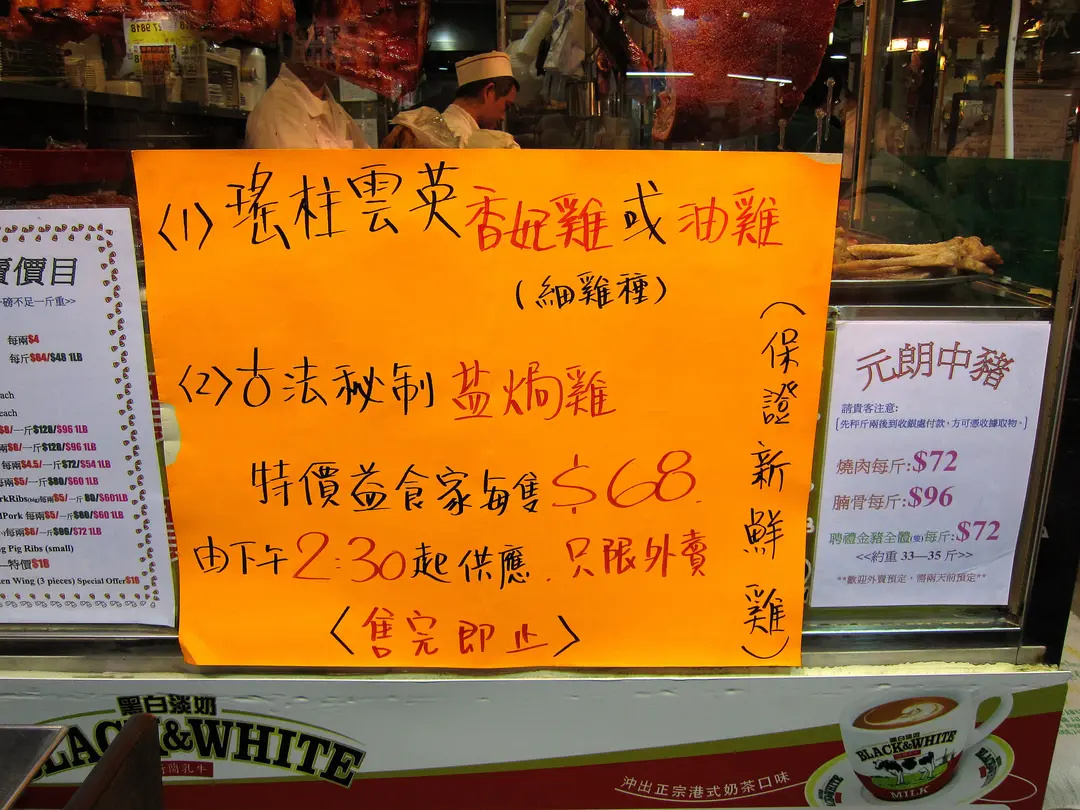 〈1〉瑤柱雲英香妃雞或油雞
(細雞種)
〈2〉古法秘制盐焗雞
特價益食家每隻$68
由下午2:30起供應.只限外賣
〈售完即止〉
(保證新鮮雞)
賣價目
磅不足一斤重>>
每兩$4
每斤$64/$48 1LB
each
each
$8/一斤$128/$96 1LB
每兩$8/一斤$128/$96 1LB
每兩$4.5/一斤$72/$54 1LB
每兩$5/一斤$80/$60 1LB
每兩$5/一斤 80/$601LB
Pork 每兩$5/一斤$80/$60 1LB
每兩$6/一斤$96/$72 1LB
g Pig Ribs (small)
一特價$18
en Wing (3 pieces) Special Offer$18
元朗中豬
請貴客注意:
[先秤斤兩後到收銀處付款,方可憑收據取物。]
燒肉每斤:$72
腩骨每斤:$96
聘禮金豬全體(隻)每斤:$72
<<約重 33—35 斤>>
**歡迎外賣預定，需兩天前預定**
黑白淡奶
BLACK&WHITE
沖出正宗港式奶茶口味
黑白淡奶
BLACK&WHITE
MILK